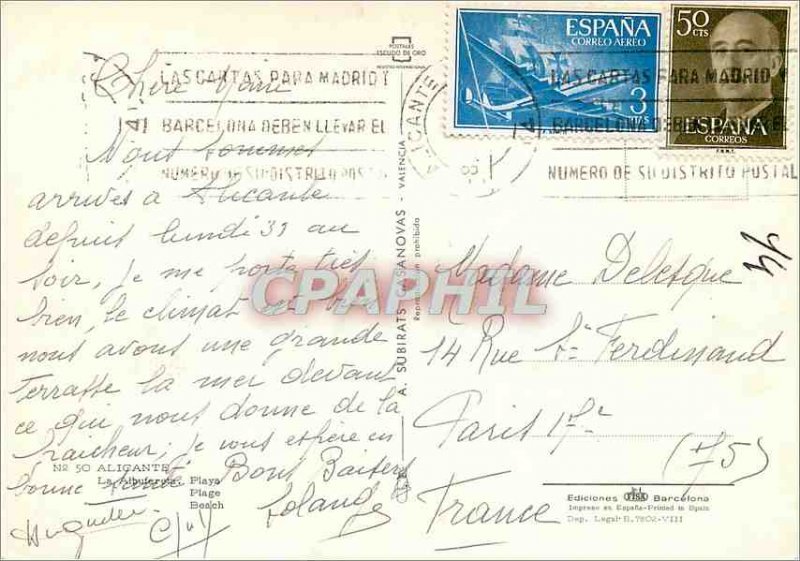 PORTALES
ESCUDO DE ORO
ESPAÑA
CORREO AEREO
3
PTAS
50
CTS
ESPAÑA
CORREOS
F.N.M.T.
ALICANTE
LAS CARTAS PARA MADRID Y
BARCELONA DEBEN LLEVAR EL
NUMERO DE SU DISTRITO POSTAL
LAS CARTAS PARA MADRID Y
BARCELONA DEBEN LLEVAR EL
NUMERO DE SU DISTRITO POSTAL
Chère
Nous sommes
arrivés à Alicante
depuis lundi 31 au
soir, je me porte très
bien, le climat est bon
nous avons une grande
Terrasse la mer devant
ce qui nous donne de la
fraicheur, je vous espère en
bonne santé Bons Baisers
Solange
Huguette
A. SUBIRATS CASANOVAS - VALENCIA
Reproducción prohibida
CPAPHIL
Madame Delesque
14 Rue St Ferdinand
Paris 17e
(75)
France
Nº 50 ALICANTE
La Albufereta. Playa
Plage
Beach
Ediciones FISA Barcelona
Impreso en España-Printed in Spain
Dep. Legal B. 7802-VIII